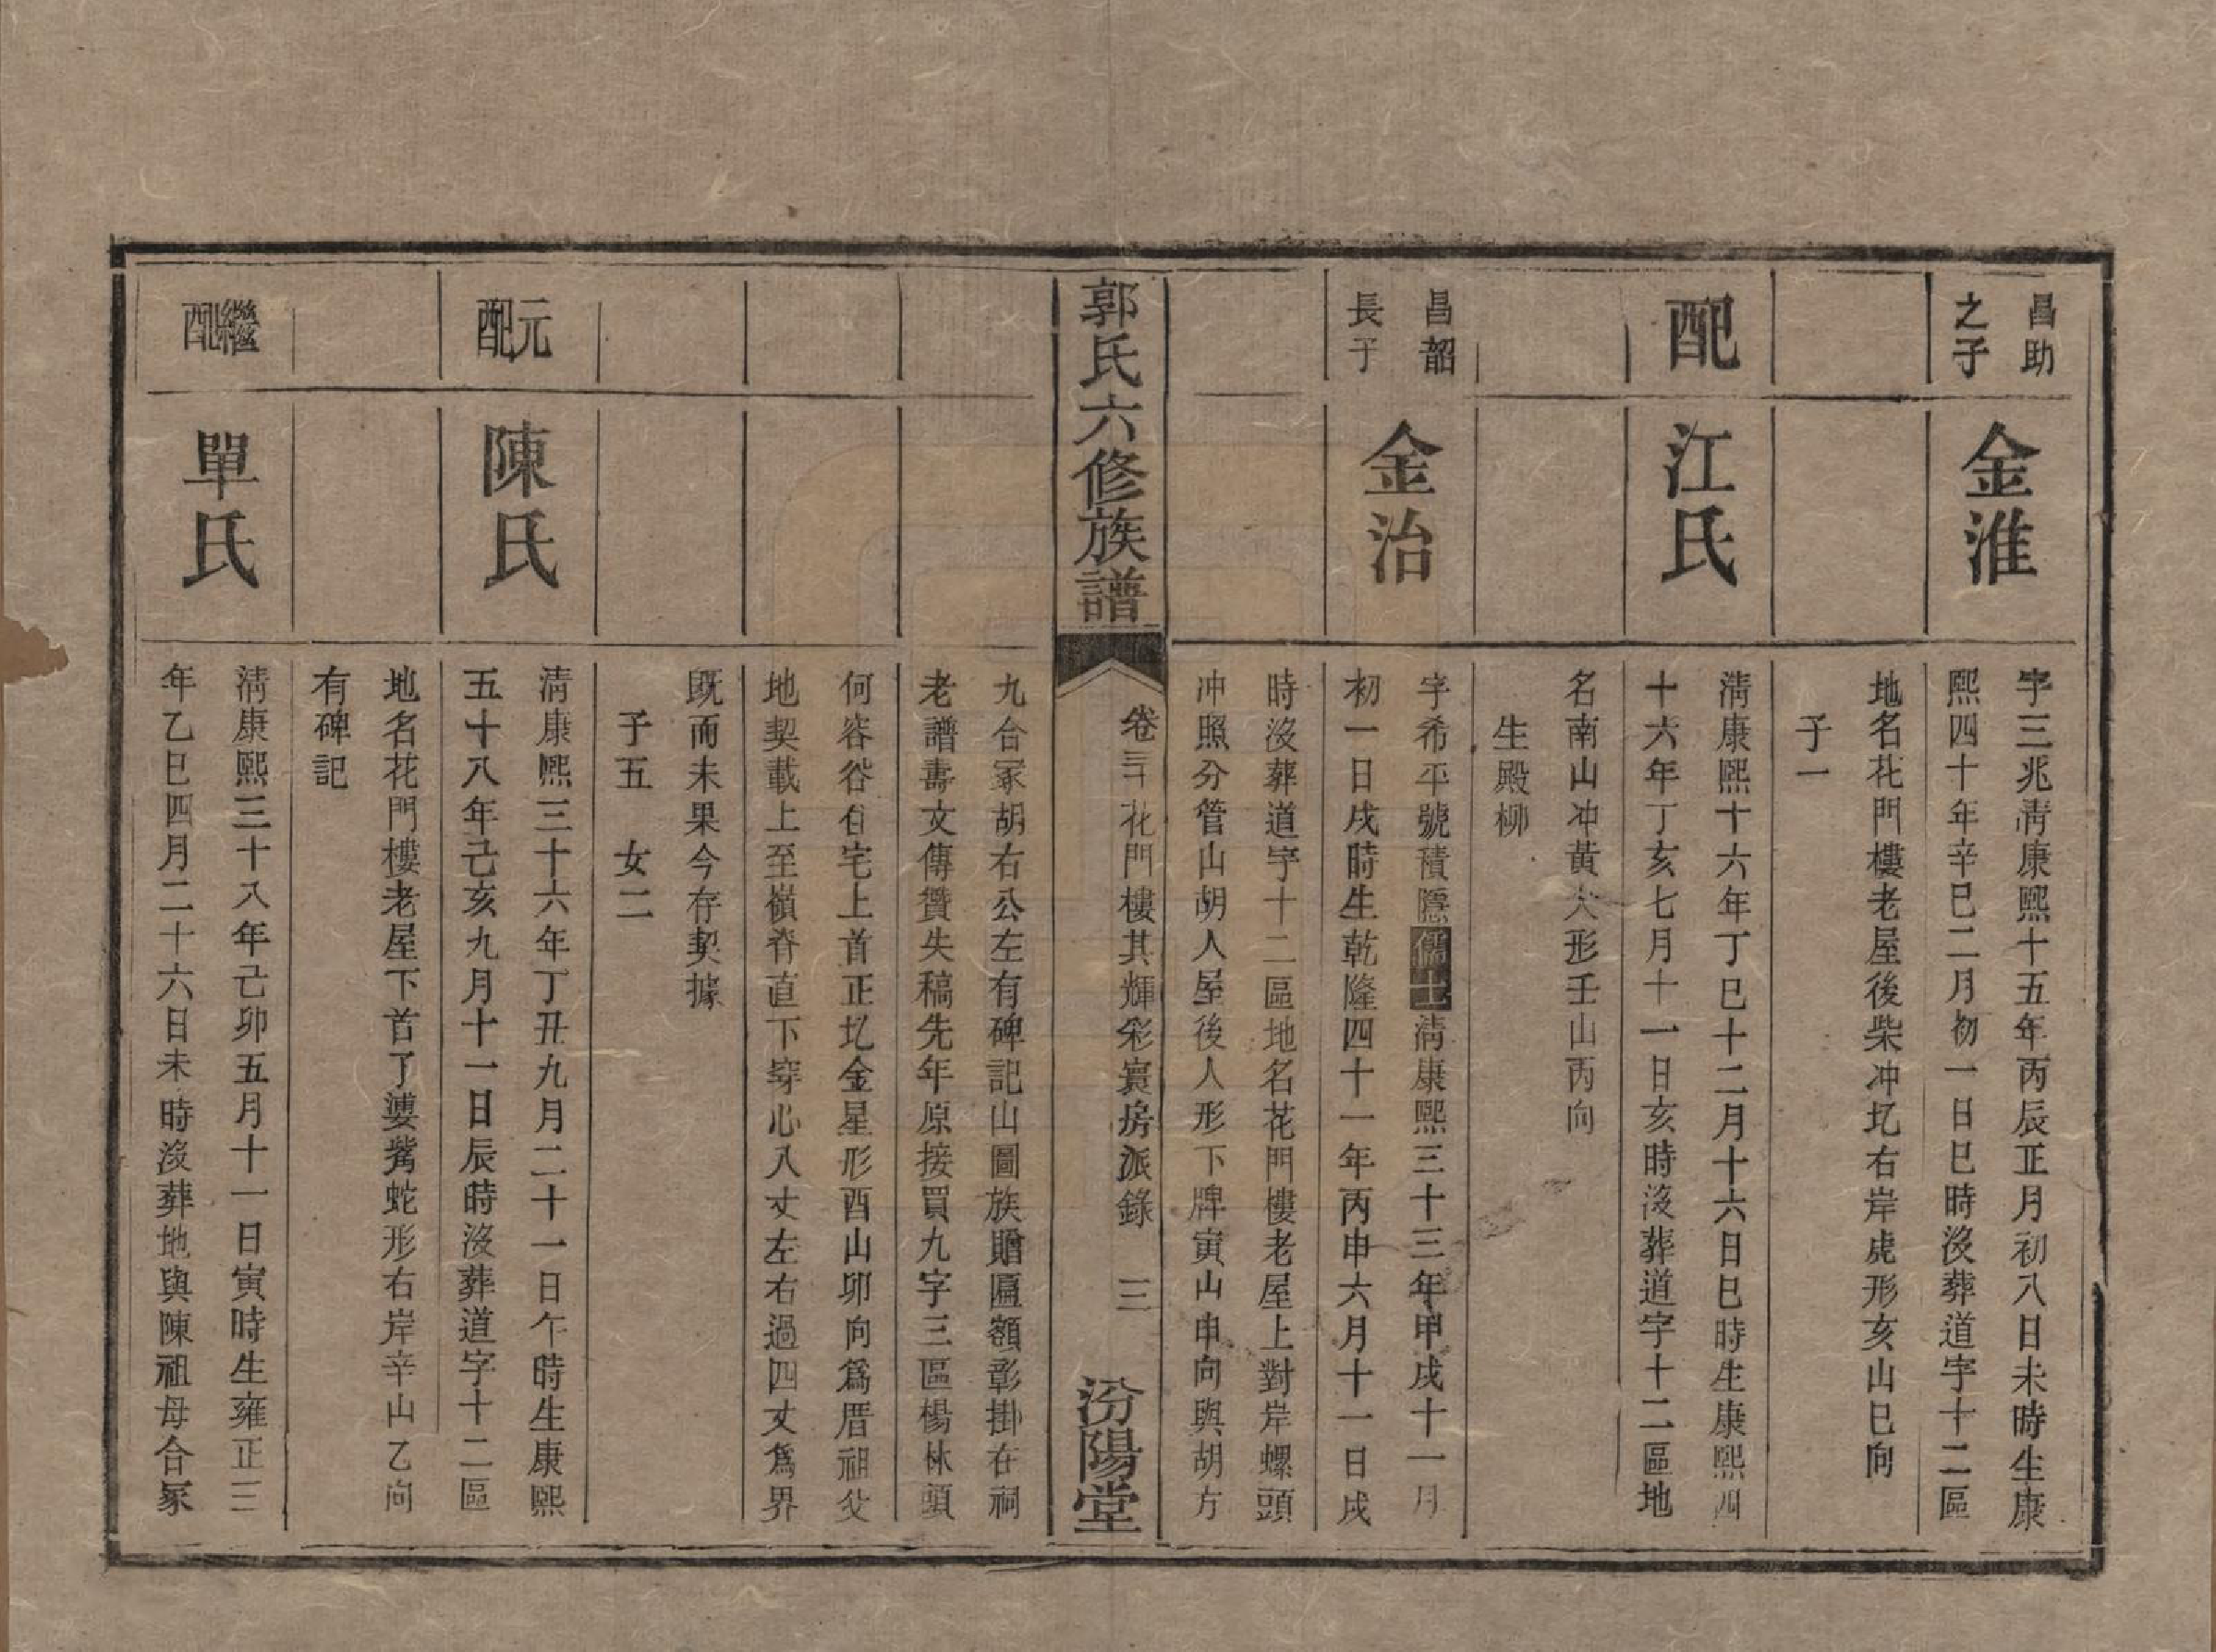 昌助
之子
金淮
字三兆清康熙十五年丙辰正月初八日未時生康
熙四十年辛巳二月初一日巳時沒葬道字十二區
地名花門樓老屋後柴冲圪右岸虎形亥山巳向
子一
配
江氏
清康熙十六年丁巳十二月十六日巳時生康熙四
十六年丁亥七月十一日亥時沒葬道字十二區地
名南山冲黃犬形壬山丙向
生殿柳
昌韶
長子
金治
字希平號積隱儒士清康熙三十三年甲戌十一月
初一日戌時生乾隆四十一年丙申六月十一日戌
時沒葬道字十二區地名花門樓老屋上對岸螺頭
冲照分管山胡人屋後人形下牌寅山申向與胡方
郭氏六修族譜
卷三 花門樓其輝彩寰房派錄 三
汾陽堂
九合冢胡右公左有碑記山圖族贈匾額彰掛在祠
老譜壽文傳贊失稿先年原接買九字三區楊林頭
何容谷住宅上首正圪金星形酉山卯向爲厝祖父
地契載上至嶺脊直下穿心八丈左右過四丈爲界
既而未果今存契據
子五 女二
元配
陳氏
清康熙三十六年丁丑九月二十一日午時生康熙
五十八年己亥九月十一日辰時沒葬道字十二區
地名花門樓老屋下首了婆觜蛇形右岸辛山乙向
有碑記
繼配
單氏
清康熙三十八年己卯五月十一日寅時生雍正三
年乙巳四月二十六日未時沒葬地與陳祖母合冢